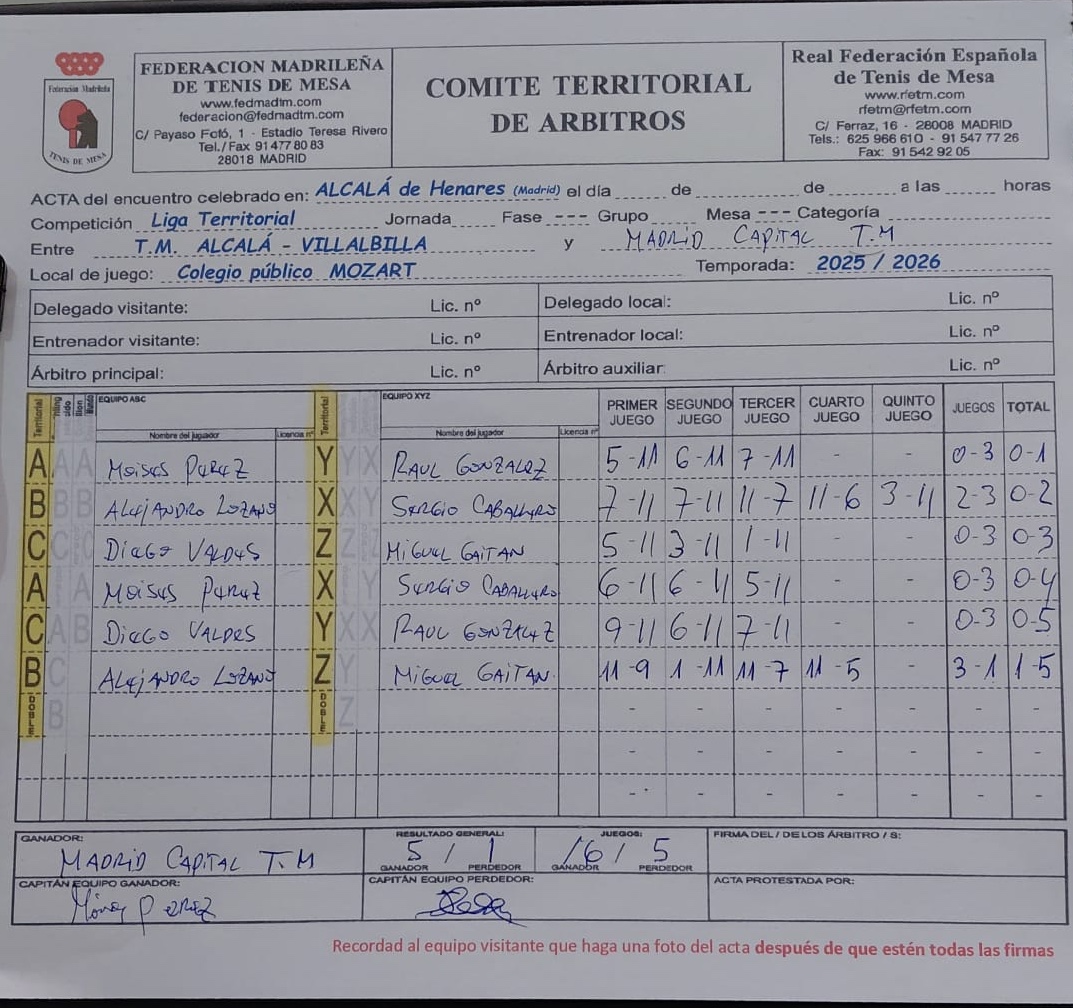 FEDERACION MADRILEÑA
DE TENIS DE MESA
www.fedmadtm.com
federacion@fedmadtm.com
C/ Payaso Fofó, 1 - Estadio Teresa Rivero
Tel./Fax 91 477 80 83
28018 MADRID
Federación Madrileña
TENIS DE MESA
COMITE TERRITORIAL
DE ARBITROS
Real Federación Española
de Tenis de Mesa
www.rfetm.com
rfetm@rfetm.com
C/ Ferraz, 16 - 28008 MADRID
Tels.: 625 966 610 - 91 547 77 26
Fax: 91 542 92 05
ACTA del encuentro celebrado en: ALCALÁ de Henares (Madrid) el día de de a las horas
Competición Liga Territorial Jornada Fase --- Grupo Mesa --- Categoría
Entre T.M. ALCALÁ - VILLALBILLA y MADRID CAPITAL T.M
Local de juego: Colegio público MOZART Temporada: 2025 / 2026
Delegado visitante: Lic. nº Delegado local: Lic. nº
Entrenador visitante: Lic. nº Entrenador local: Lic. nº
Árbitro principal: Lic. nº Árbitro auxiliar: Lic. nº
Territorial EQUIPO ABC Territorial EQUIPO XYZ PRIMER JUEGO SEGUNDO JUEGO TERCER JUEGO CUARTO JUEGO QUINTO JUEGO JUEGOS TOTAL
Nombre del jugador Licencia nº Nombre del jugador Licencia nº
A A A MOISES PEREZ Y Y X RAUL GONZALEZ 5-11 6-11 7-11 - - 0-3 0-1
B B B ALEJANDRO LOZANO X X Y SERGIO CABALLERO 7-11 7-11 11-7 11-6 3-11 2-3 0-2
C DIEGO VALDES Z Z MIGUEL GAITAN 5-11 3-11 1-11 - - 0-3 0-3
A A MOISES PEREZ X Y SERGIO CABALLERO 6-11 6-11 5-11 - - 0-3 0-4
C A B DIEGO VALDES Y X X RAUL GONZALEZ 9-11 6-11 7-11 - - 0-3 0-5
B C ALEJANDRO LOZANO Z Y MIGUEL GAITAN 11-9 1-11 11-7 11-5 - 3-1 1-5
DOBLE B DOBLE Z - - - - - - -
- - - - - - -
- - - - - - -
GANADOR: RESULTADO GENERAL: JUEGOS: FIRMA DEL / DE LOS ÁRBITRO / S:
MADRID CAPITAL T.M 5 / 1 16 / 5
GANADOR PERDEDOR GANADOR PERDEDOR
CAPITÁN EQUIPO GANADOR: CAPITÁN EQUIPO PERDEDOR: ACTA PROTESTADA POR:
PEREZ
Recordad al equipo visitante que haga una foto del acta después de que estén todas las firmas